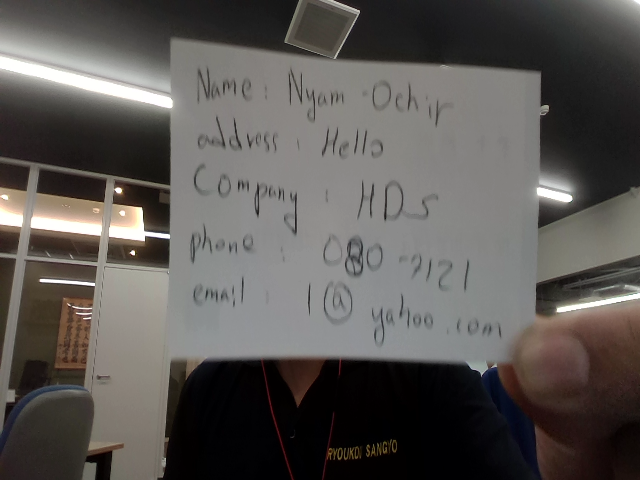 Name: Nyam-Ochir
address: Hello
Company: HDS
phone: 080-2121
email: 1@yahoo.com
RYOUKOU SANGYO